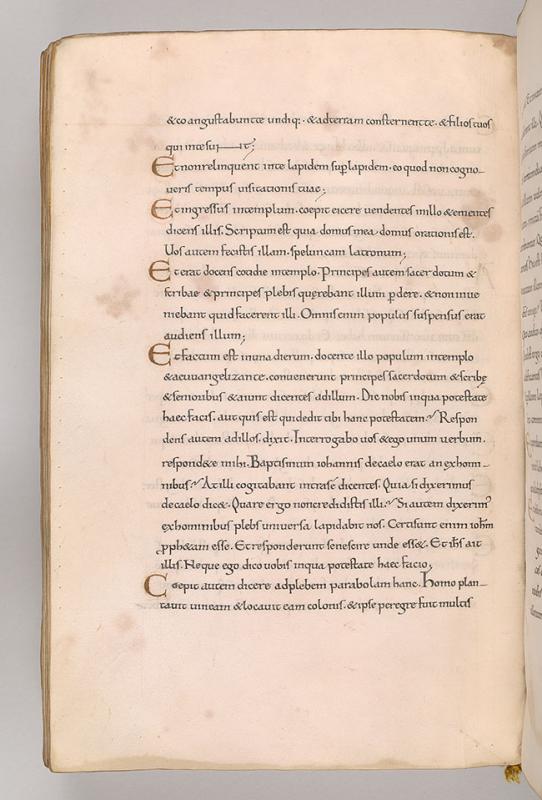 & coangustabunt te undiq;. & ad terram consternent te. & filios tuos
qui in te su—nt;
Et non relinquent in te lapidem sup lapidem. eo quod non cogno-
veris tempus visitationis tuae;
Et ingressus in templum. coepit eicere vendentes in illo & ementes
dicens illis. Scriptum est quia domus mea. domus orationis est.
Vos autem fecistis illam. speluncam latronum;
Et erat docens cotidie in templo. Principes autem sacerdotum &
scribae & principes plebis quęrebant illum pdere. & non inve
niebant quid facerent illi. Omnis enim populus suspensus erat
audiens illum;
Et factum est in una dierum. docente illo populum in templo
& aeuuangelizante. convenerunt principes sacerdotum & scribę
& senioribus & aiunt dicentes ad illum. Dic nobis in qua potestate
haec facis. aut quis est qui dedit tibi hanc potestatem? Respon
dens autem ad illos. dixit. Interrogabo vos & ego unum verbum.
respond&e mihi. Baptismum iohannis de caelo erat an ex homi-
nibus? At illi cogitabant intra se dicentes. Quia si dixerimus
de caelo dic&. Quare ergo non credidistis illi? Si autem dixerim'
ex hominibus plebs universa lapidabit nos. Certi sunt enim ioh̄m
pph&am esse. Et responderunt se nescire unde ess&. Et ih̄s ait
illis. Neque ego dico vobis in qua potestate haec facio;
Coepit autem dicere ad plebem parabolam hanc. Homo plan-
tavit vineam & locavit eam colonis. & ipse peregre fuit multis